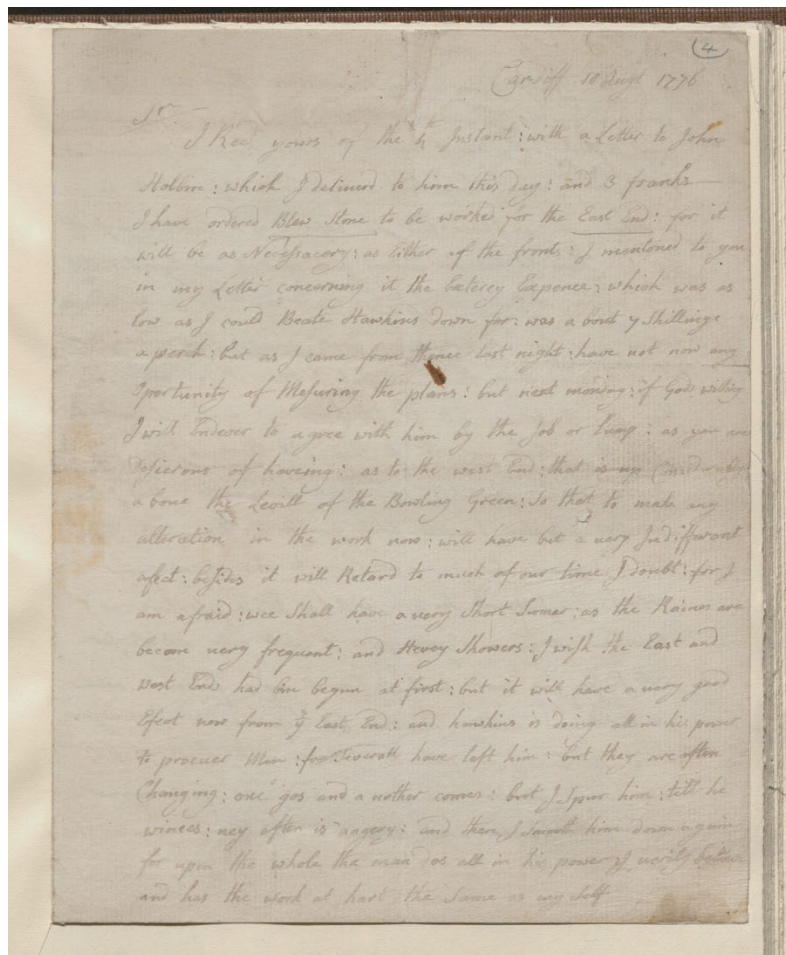 (4
Cardiff 18 Augt 1776
Sr.
I Recd yours of the 4th Instant: with a Letter to John
Holbine: which I deliverd to him this day: and 3 franks
I have ordered Blew Stone to be worked for the East End: for it
will be as Necessacery: as Either of the fronts: I mentoned to you
in my Letter concerning it the Extercy Expence: which was as
low as I could Beate Hawkins down for: was a bout 7 Shillings
a perch: but as I came from thence last night: have not now any
Oportunity of Mesuring the plans: but next moning: if God willing
I will Endever to agree with him by the Job or Lump: as you are
Desierous of haveing: as to the west End: that is up Considerabley
a bove the Levill of the Bowling Green: So that to make any
alteration in the work now: will have but a very Indifferant
afect: besides it will Retard to much of our time I doubt: for I
am afraid: wee Shall have a very Short Sumer: as the Raines are
becom very frequent: and Hevey Showers: I wish the East and
West Ends had bin begun at first: but it will have a very good
Efect now from ye East End: and hawkins is doing all in his power
to procuer Men: for Severall have left him: but they are often
Changing: one gos and a nother comes: but I Spur him: till he
winces: ney often is angery: and then I him down again
for upon the whole the man dos all in his power I verily beleive
and has the work at hart the Same as my Self